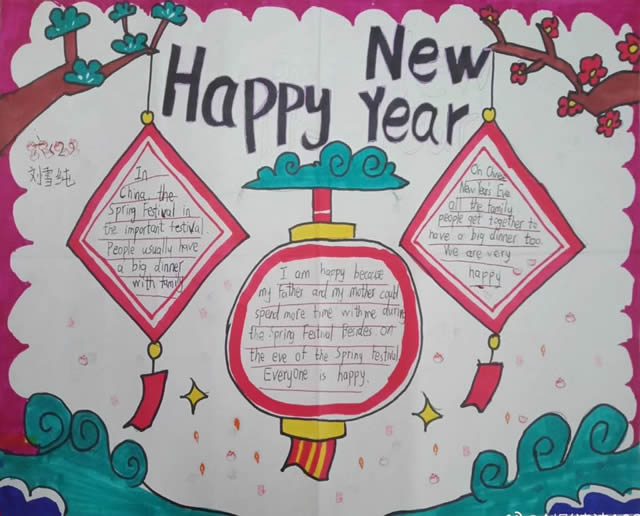 Happy New Year
刘雪纯
In
China, the
Spring Festival in
the important festival.
People usually have
a big dinner
with family
I am happy because
my Father and my mother could
spend more time with me during
the Spring Festival Besides on
the eve of the Spring festival
Everyone is happy.
On
New Year's Eve
all the family
people get together to
have a big dinner too.
We are very
happy